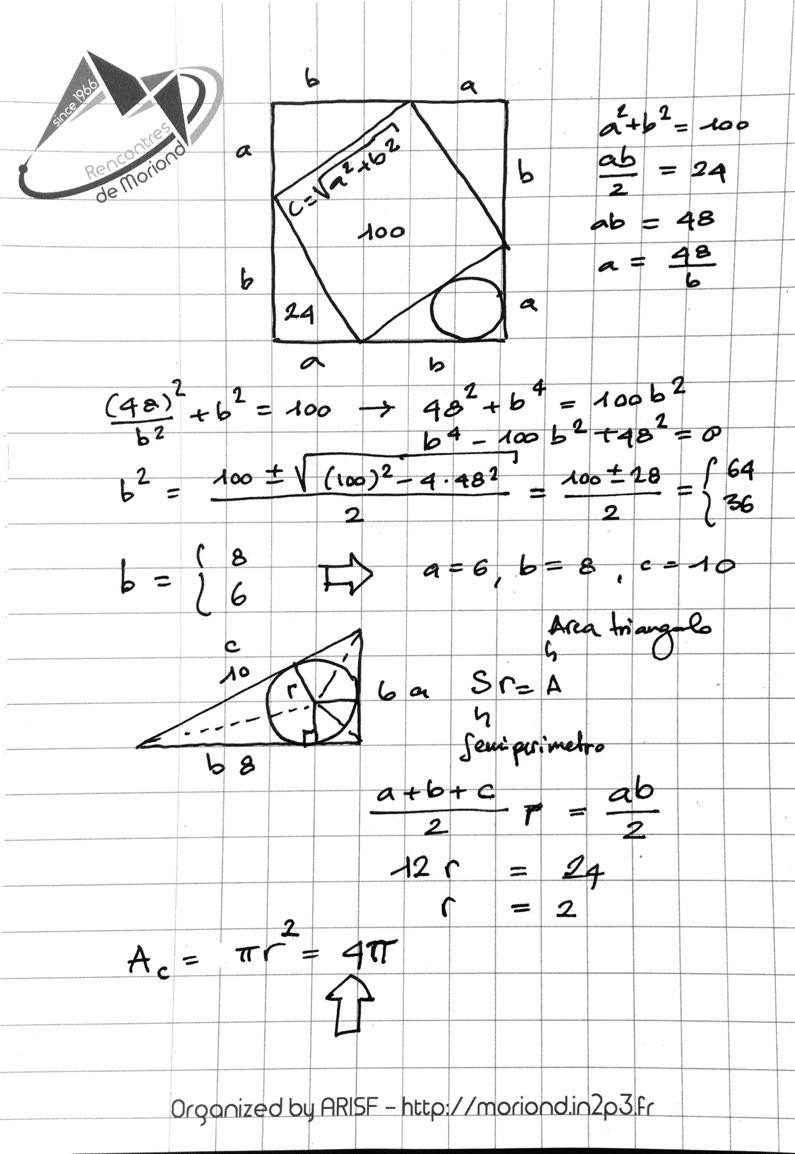 since 1966
Rencontres
de Moriond
b a
a
b
c=√a²+b²
100
b
24
a
a b
a²+b² = 100
ab/2 = 24
ab = 48
a = 48/b
(48)²/b² + b² = 100 → 48² + b⁴ = 100b²
b⁴ - 100b² + 48² = 0
b² = (100 ± √(100)² - 4·48²)/2 = (100 ± 28)/2 = { 64 36
b = { 8 6 ⇨ a = 6, b = 8, c = 10
c
10
r
6 a
b 8
Area triangolo
S r = A
Semiperimetro
(a+b+c)/2 r = ab/2
12 r = 24
r = 2
A_c = πr² = 4π
Organized by ARISF – http://moriond.in2p3.fr